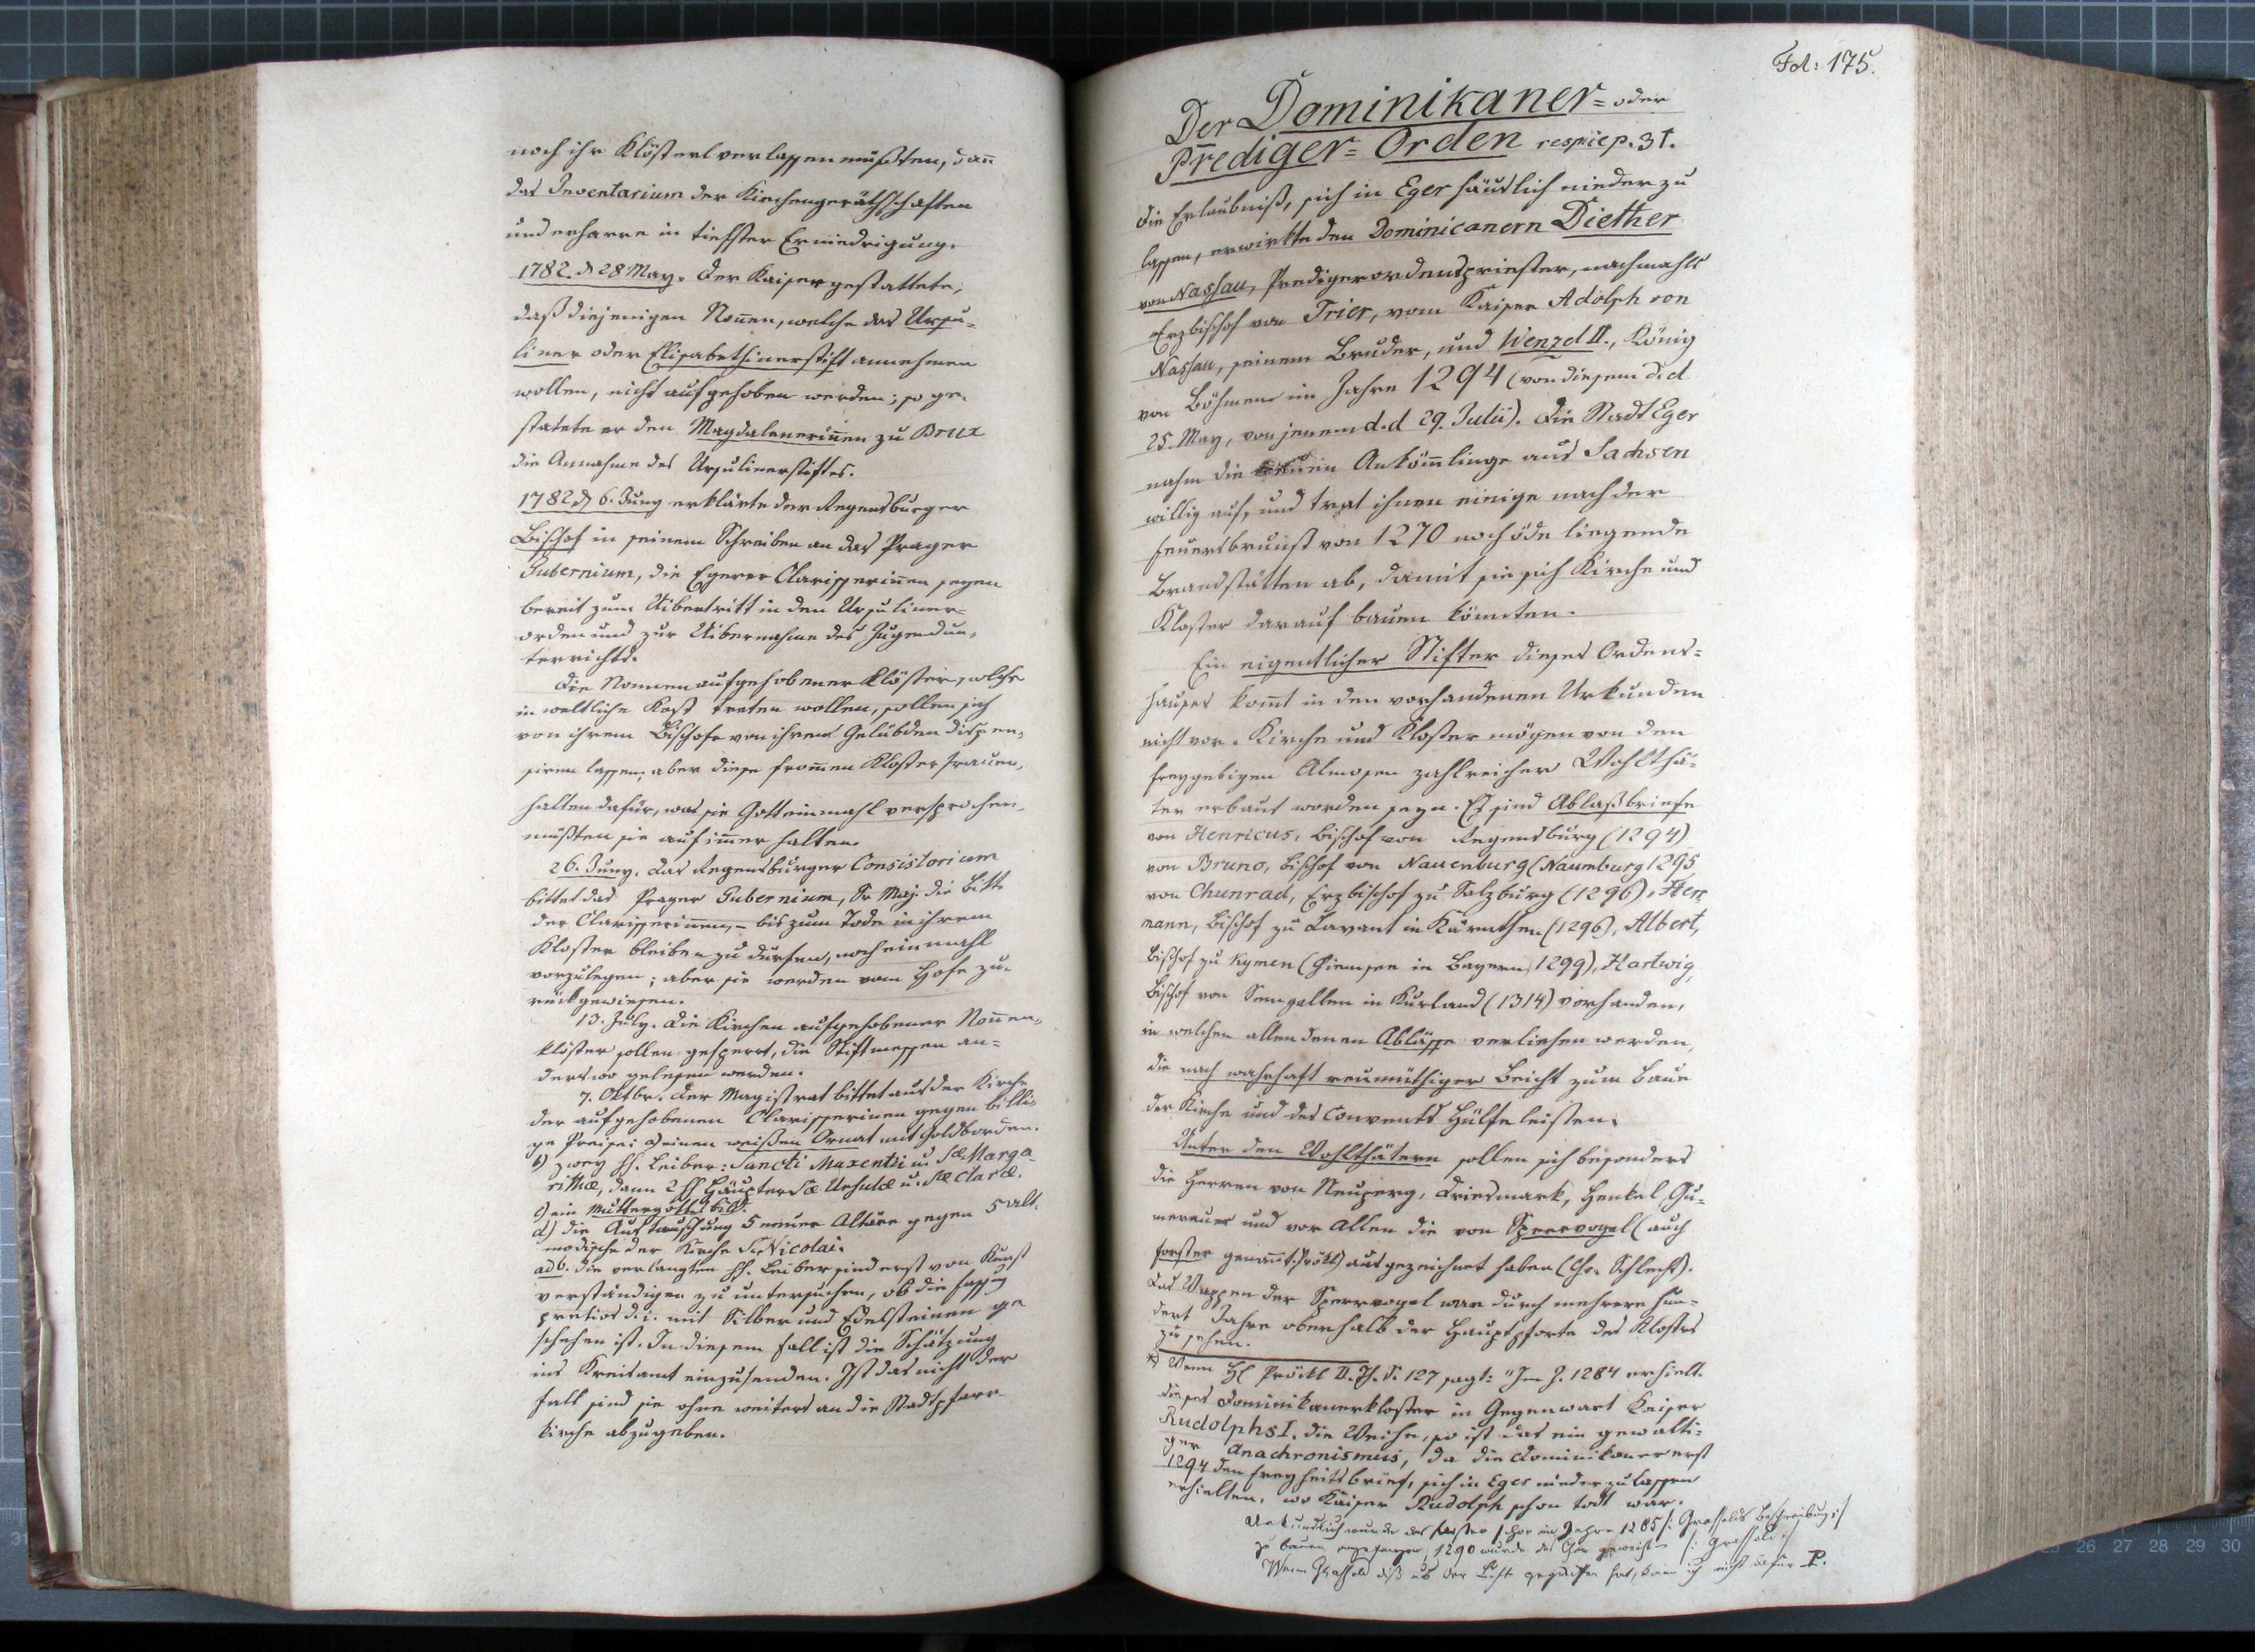 noch ihr Klösterl verlassen mußten, dann
das Inventarium der Kirchengeräthschaften
und erharre in tiefster Erniedrigung.
1782. d 28 May. Der Kaiser gestattete,
daß diejenigen Nonnen, welche das Ursu-
liner oder Elisabethinerstift annehmen
wollen, nicht aufgehoben werden; so ge-
statete er den Magdalenerinen zu Brux
die Annahme des Ursulinerstiftes.
1782 d 6. Juny erklärte der Regensburger
Bischof in seinem Schreiben an das Prager
Gubernium, die Egerer Clarisserinen seyen
bereit zum Uibertritt in den Ursuliner-
orden und zur Uibernahme des Jugendun-
terrichts.
Die Nonnen aufgehobener Klöster, welche
in weltliche Kost treten wollen, sollen sich
von ihrem Bischofe von ihren Gelübden dispen-
siren lassen; aber diese fromen Klosterfrauen,
halten dafür, was sie Gott einmahl versprochen,
müßten sie auf imer halten.
26. Juny. Das Regensburger Consistorium
bittet das Prager Gubernium, Sr Maj. die Bitte
der Clarisserinen, – bis zum Tode in ihrem
Kloster bleiben zu dürfen, noch einmahl
vorzulegen; aber sie werden vom Hofe zu-
rückgewiesen.
13. July. Die Kirchen aufgehobener Nonen-
klöster sollen gesperrt, die Stiftmessen an-
derswo gelesen werden.
7. Oktbr. Der Magistrat bittet aus der Kirche
der aufgehobenen Clarisserinen gegen billi-
ge Preise: a) einen weißen Ornat mit Goldborden.
b) zwey hh. Leiber: Sancti Maxentii u. Sæ Marga-
rithæ, dann 2 hh Häupter Sæ Ursulæ u. Sæ Claræ.
c) ein Muttergottesbild.
d) die Austauschung 5 neuer Altäre gegen 5 alt-
modische der Kirche S. Nicolai.
ad b. die verlangten hh. Leiber sind erst von Kunst
verständigen zu untersuchen, ob die Fassung
pretios d. i. mit Silber und Edelsteinen ge
schehen ist. In diesem Fall ist die Schätzung
ins Kreisamt einzusenden. Ist das nicht der
Fall sind sie ohne weiters an die Stadtpfarr-
kirche abzugeben.
Fol: 175.
Der Dominikaner= oder
Prediger= Orden respice p. 31.
Die Erlaubniß, sich in Eger häuslich niederzu
lassen, erwirkte den Dominicanern Diether
von Nassau, Predigerordenspriester, nachmahls
Erzbischof von Trier, vom Kaiser Adolph von
Nassau, seinem Bruder, und Wenzel II., König
von Böhmen im Jahre 1294 (von diesem d. d
25. May, von jenem d. d 29. Julii). Die Stadt Eger
nahm die Ankömlinge aus Sachsen
willig auf, und trat ihnen einige nach der
Feuersbrunst von 1270 noch öde liegende
Brandstätten ab, damit sie sich Kirche und
Kloster darauf bauen könnten.
Ein eigentlicher Stifter dieses Ordens=
hauses komt in den vorhandenen Urkunden
nicht vor. Kirche und Kloster mögen von den
freygebigen Almosen zahlreicher Wohlthä-
ter erbaut worden seyn. Es sind Ablaßbriefe
von Henricus, Bischof von Regensburg (1294)
von Bruno, Bischof von Nauenburg (Naumburg 1295
von Chunrad, Erzbischof zu Salzburg (1296), Her-
mann, Bischof zu Lavant in Kärnthen (1296), Albert,
Bischof zu Kymen (Chiemsee in Bayern) 1299), Hartwig,
Bischof von Semgallen in Kurland (1314) vorhanden,
in welchen allen denen Ablässe verliehen werden,
die nach wahrhaft reumüthiger Beicht zum Baue
der Kirche und des Convents Hülfe leisten.
Unter den Wohlthätern sollen sich besonders
die Herren von Neuperg, Driesmark, Henkel, Gu-
merauer und vor Allen die von Sperrvogel (auch
Forster genannt. Pröckl) ausgezeichnet haben (Chr. Schlecht).
Das Wappen der Sperrvogel war durch mehrere hun-
dert Jahre oberhalb der Hauptpforte des Klosters
zu sehen.
*) Wenn H Pröckl II. Th. S. 127 sagt: "Im J. 1284 erhielt
dieses Dominikanerkloster in Gegenwart Kaiser
Rudolphs I. die Weihe, so ist das ein gewalti-
ger Anachronismus, da die Dominikaner erst
1294 den Freyheitsbrief, sich in Eger niederzulassen
erhielten, wo Kaiser Rudolph schon todt war.
Urkundlich wurde das Kloster schon im Jahre 1285 /: Grassolds Beschreibung :/
zu bauen angefangen, 1290 wurde das Chor geweiht /: Grassold :/
Wenn Grassold dieß aus der Luft gegriffen hat, kann ich nicht dafür P.